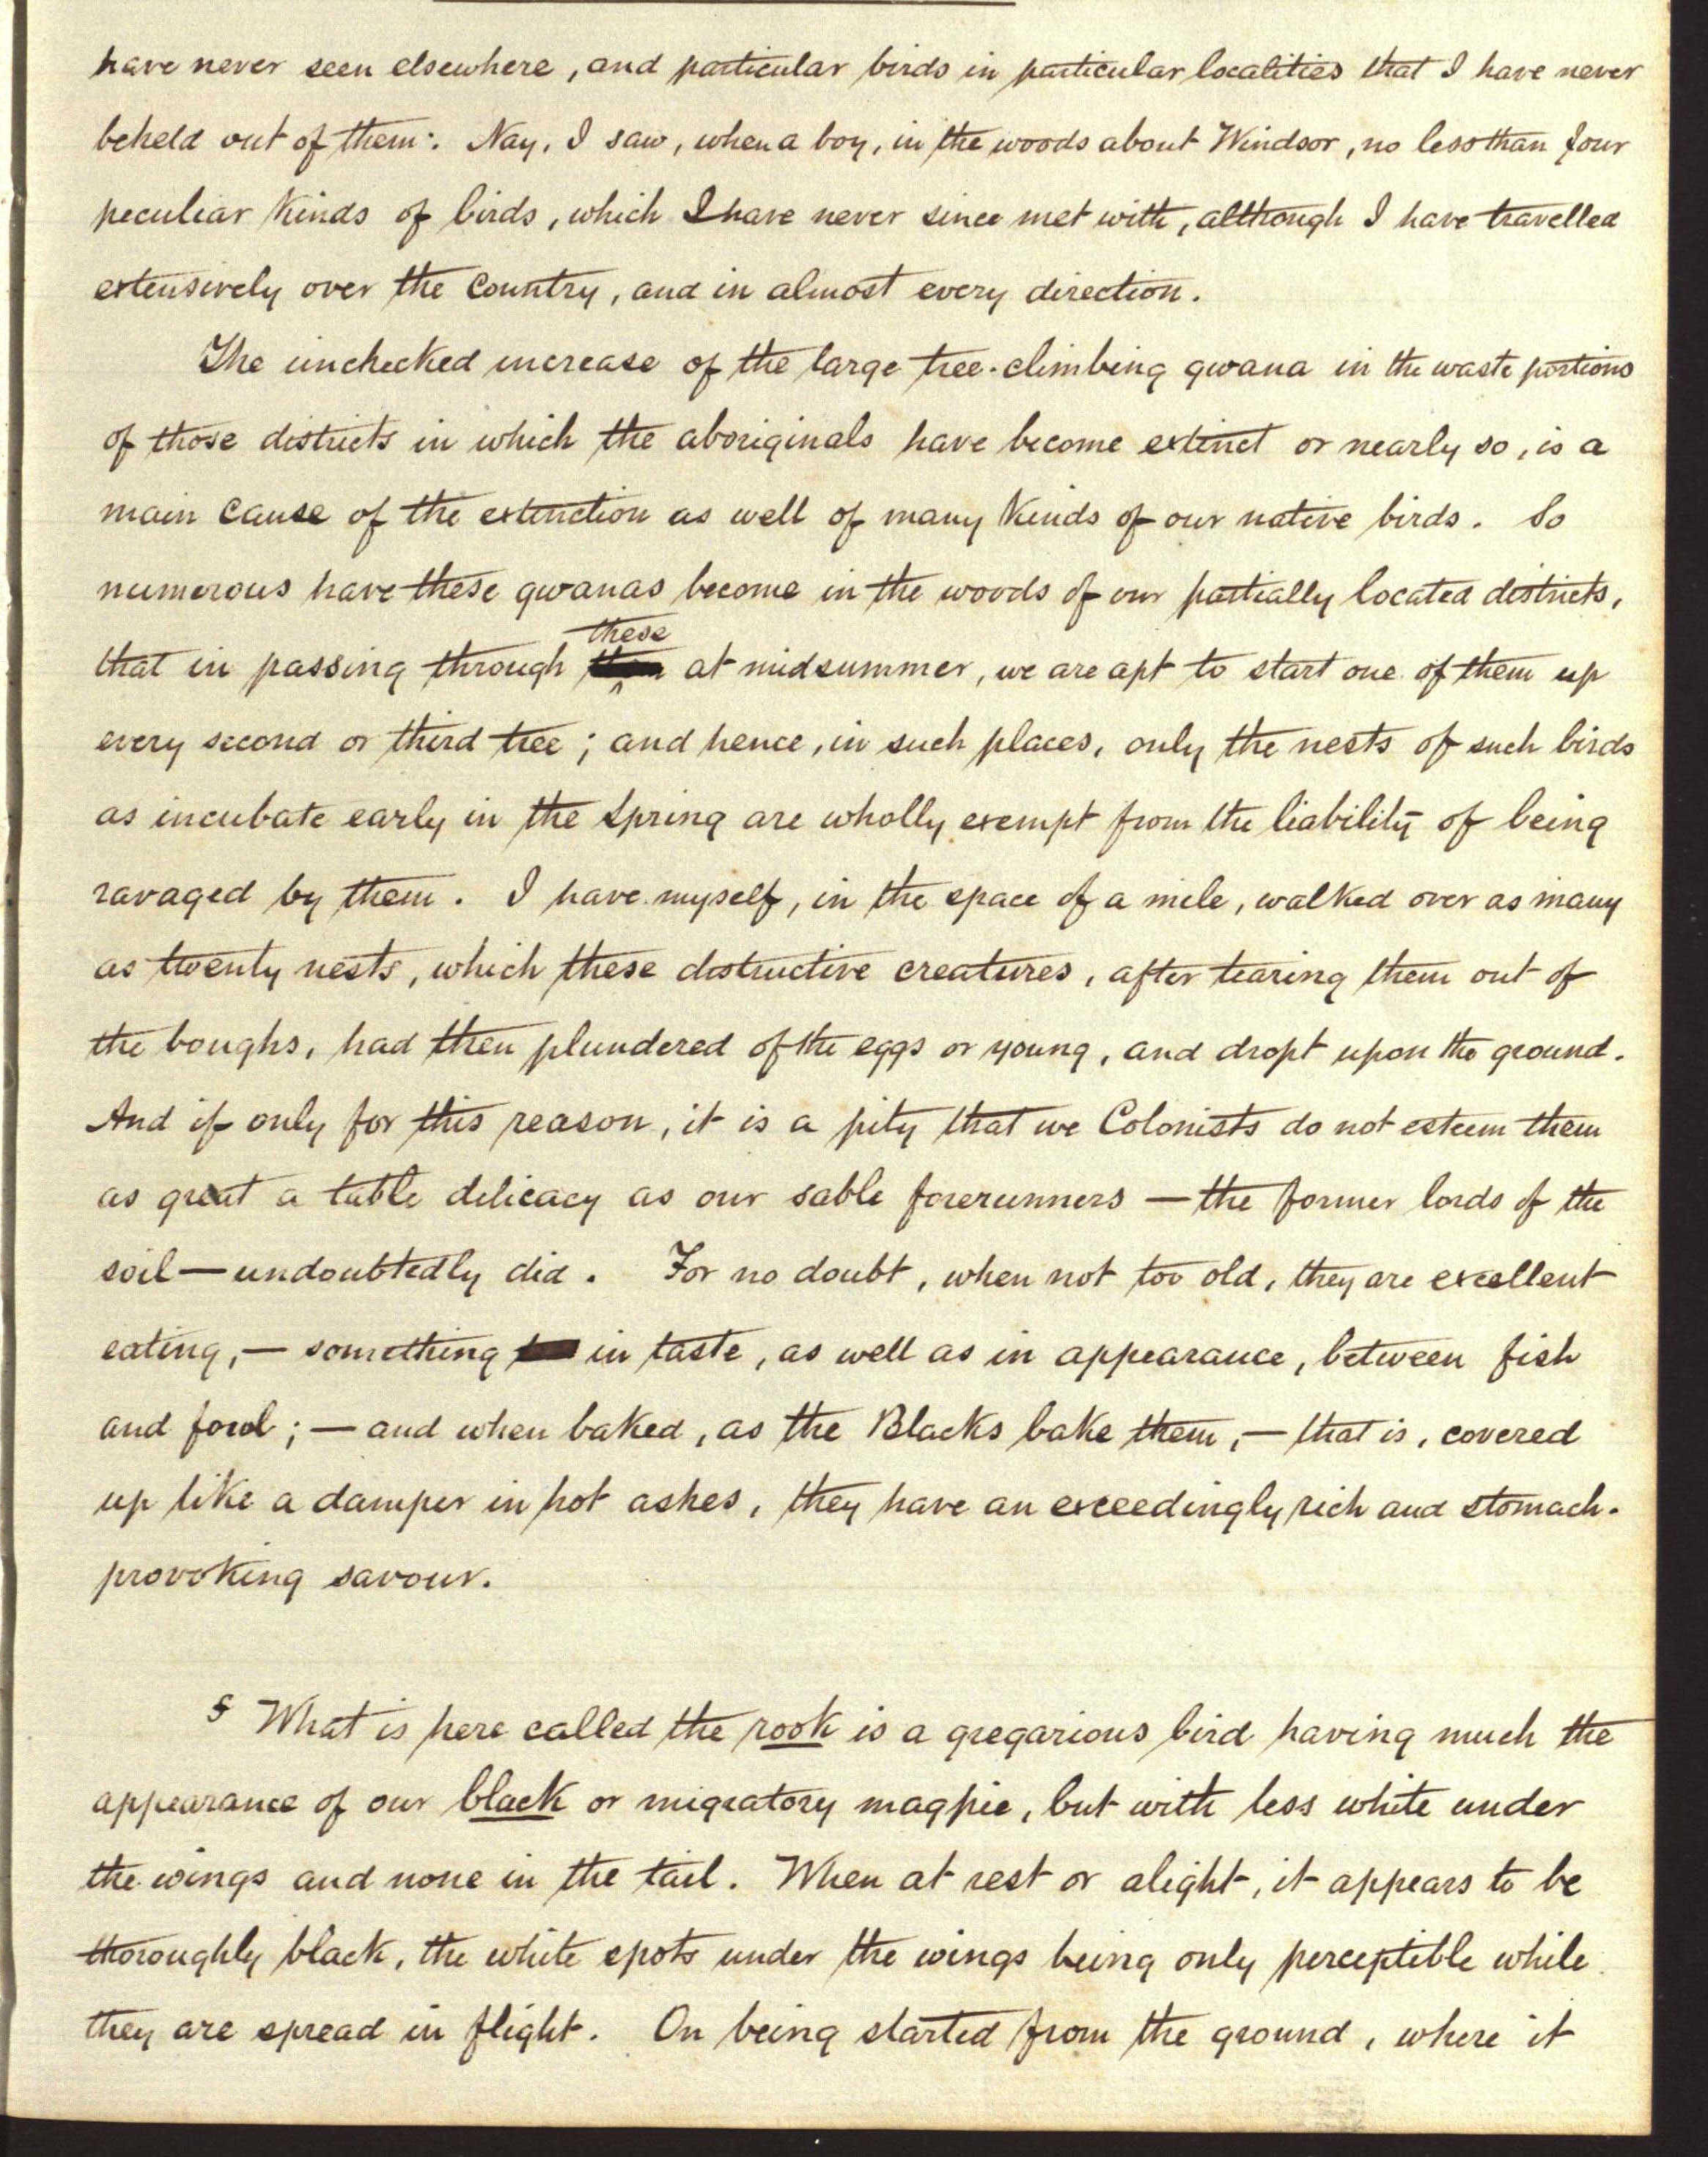 have never seen elsewhere, and particular birds in particular localities that I have never
beheld out of them: Nay, I saw, when a boy, in the woods about Windsor, no less than four
peculiar kinds of birds, which I have never since met with, although I have travelled
extensively over the country, and in almost every direction.
The unchecked increase of the large tree-climbing gwana in the waste portions
of those districts in which the aboriginals have become extinct or nearly so, is a
main cause of the extinction as well of many kinds of our native birds. So
numerous have these gwanas become in the woods of our partially located districts,
these
that in passing through at midsummer, we are apt to start one of them up
every second or third tree; and hence, in such places, only the nests of such birds
as incubate early in the Spring are wholly exempt from the liability of being
ravaged by them. I have myself, in the space of a mile, walked over as many
as twenty nests, which these destructive creatures, after tearing them out of
the boughs, had then plundered of the eggs or young, and dropt upon the ground.
And if only for this reason, it is a pity that we Colonists do not esteem them
as great a table delicacy as our sable forerunners — the former lords of the
soil — undoubtedly did. For no doubt, when not too old, they are excellent
eating, — something in taste, as well as in appearance, between fish
and fowl; — and when baked, as the Blacks bake them, — that is, covered
up like a damper in hot ashes, they have an exceedingly rich and stomach-
provoking savour.
§ What is here called the rook is a gregarious bird having much the
appearance of our black or migratory magpie, but with less white under
the wings and none in the tail. When at rest or alight, it appears to be
thoroughly black, the white spots under the wings being only perceptible while
they are spread in flight. On being started from the ground, where it